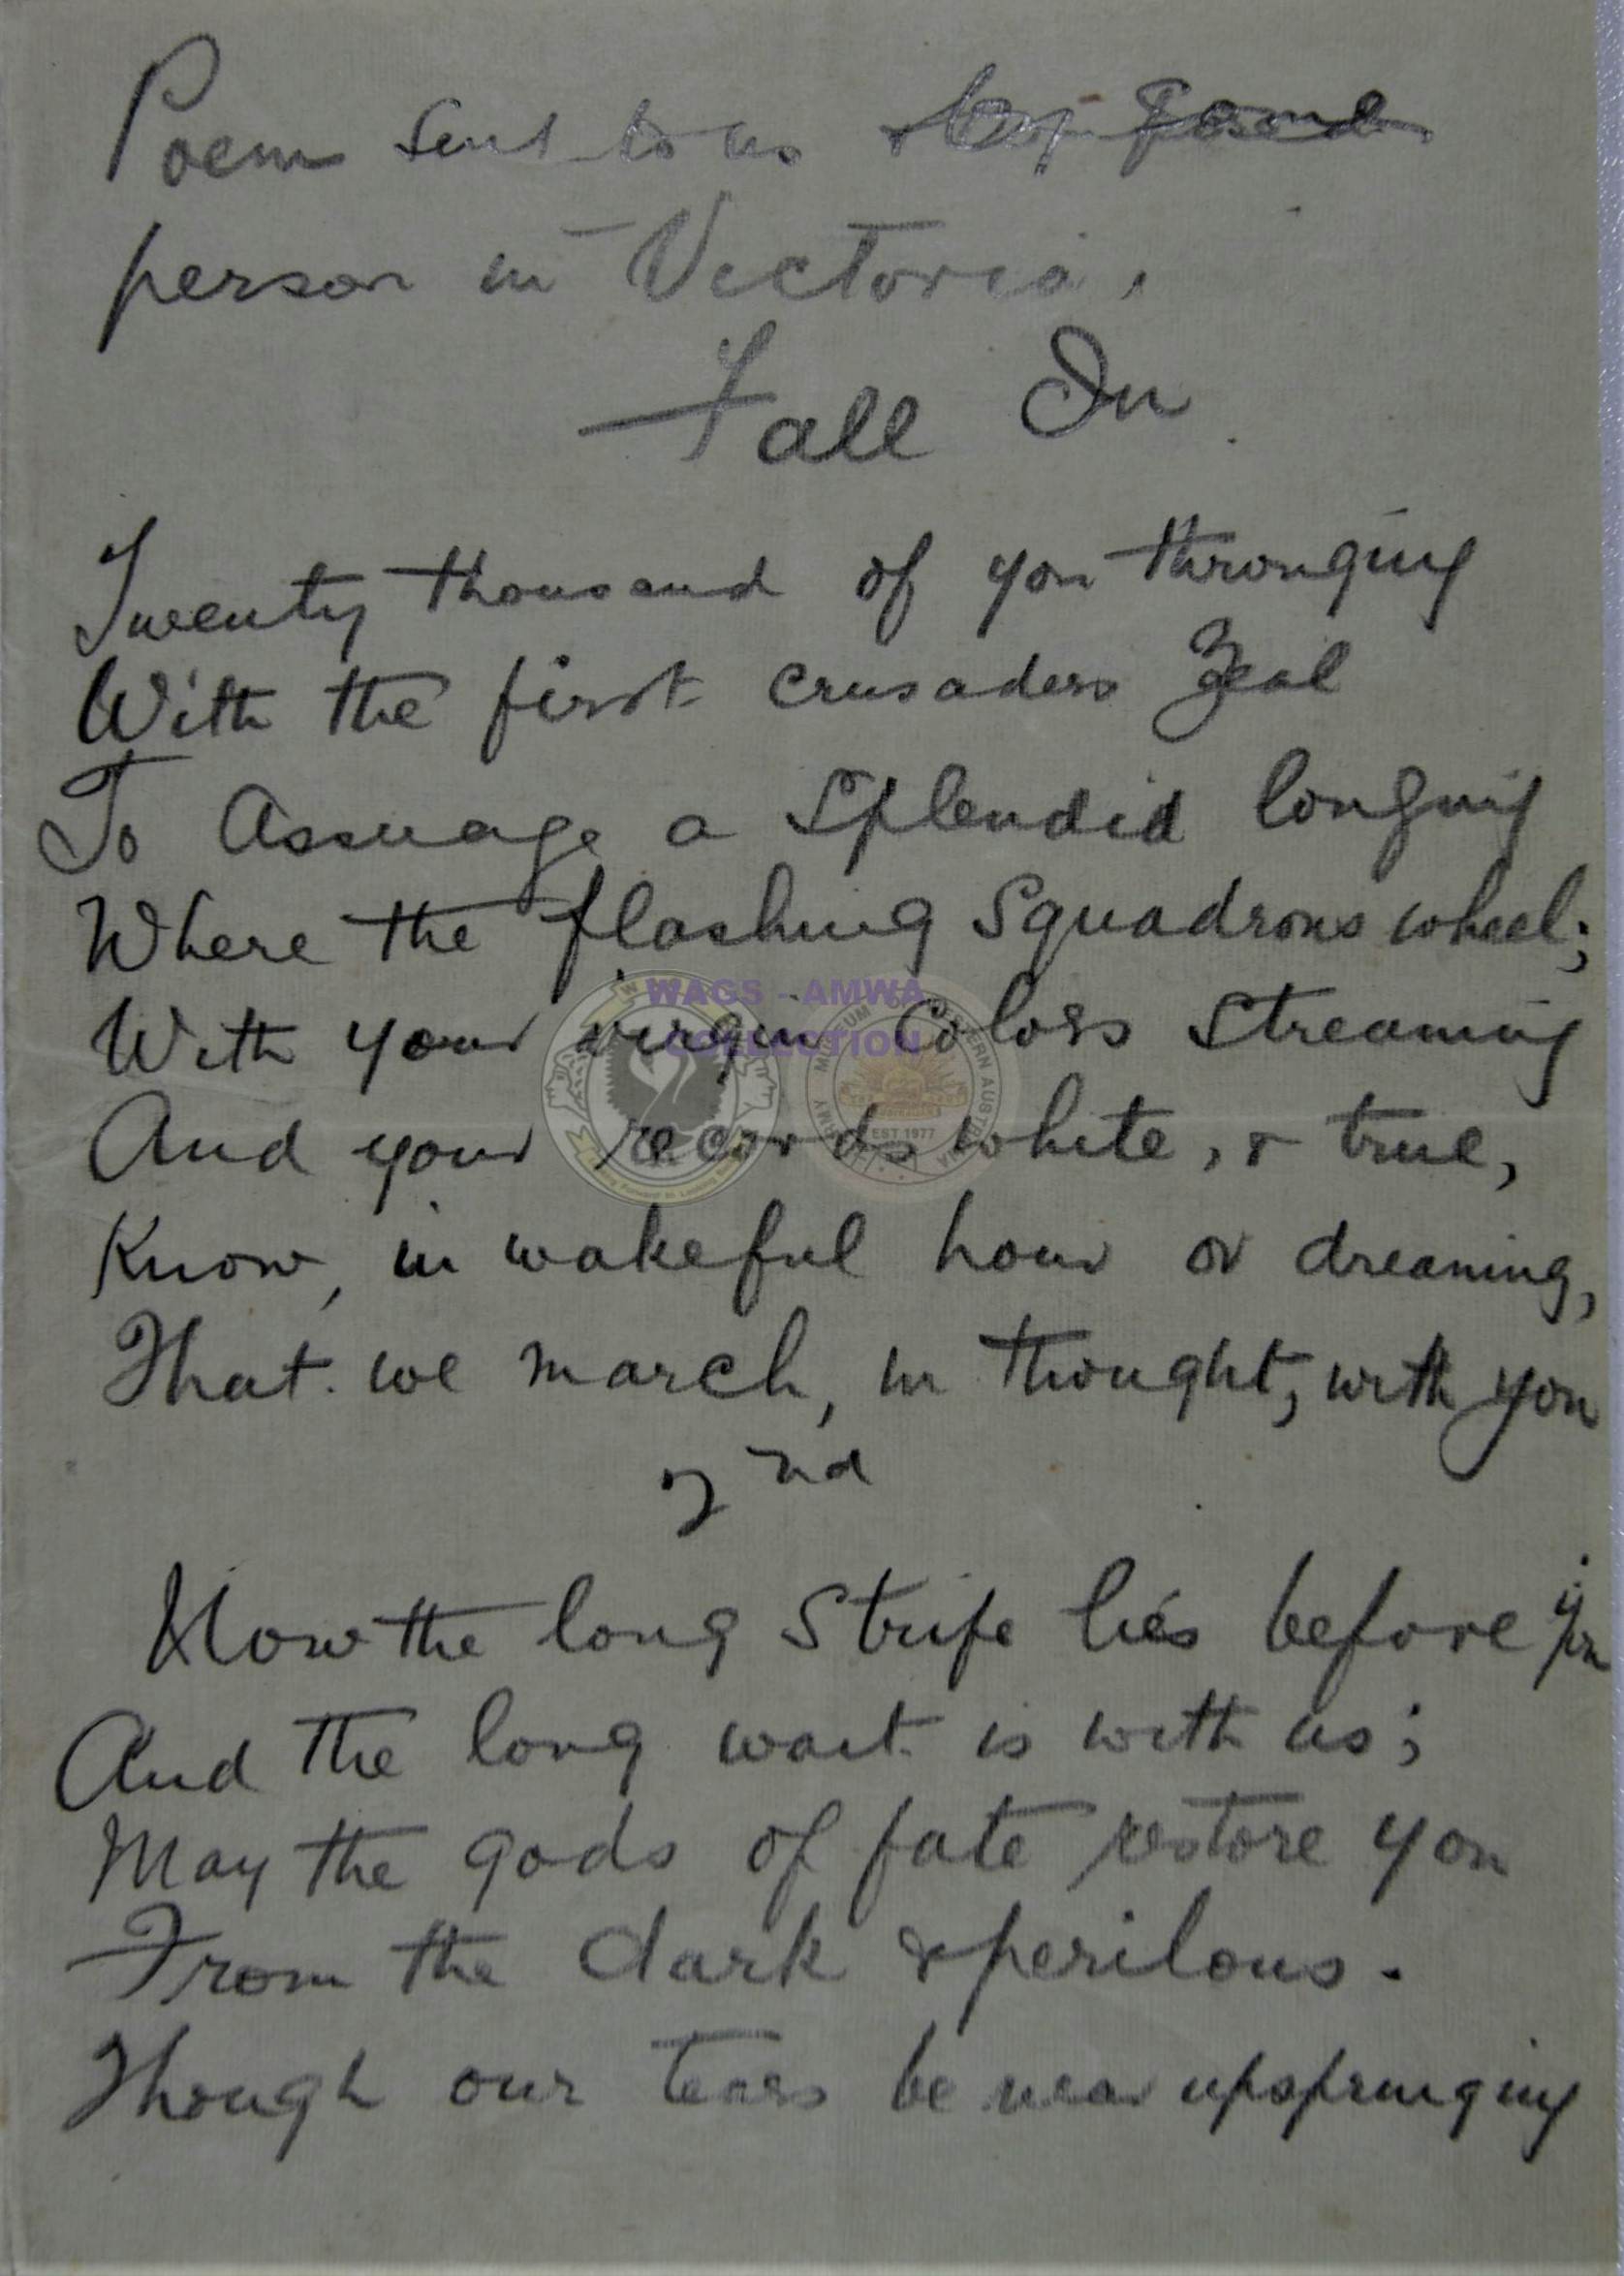 Poem sent to us by some
person in Victoria.
Fall In
Twenty thousand of you thronging
With the first crusaders zeal
To Assuage a Splendid longing
Where the flashing Squadrons wheel;
WAGS - AMWA
COLLECTION
With your virgin Colors Streaming
And your records white, & true,
EST 1977
Know, in wakeful hour or dreaming,
That we march, in thought, with you
2nd
Now the long Strife lies before you
And the long wait is with us;
May the gods of fate restore you
From the dark & perilous.
Though our tears be near upspringing